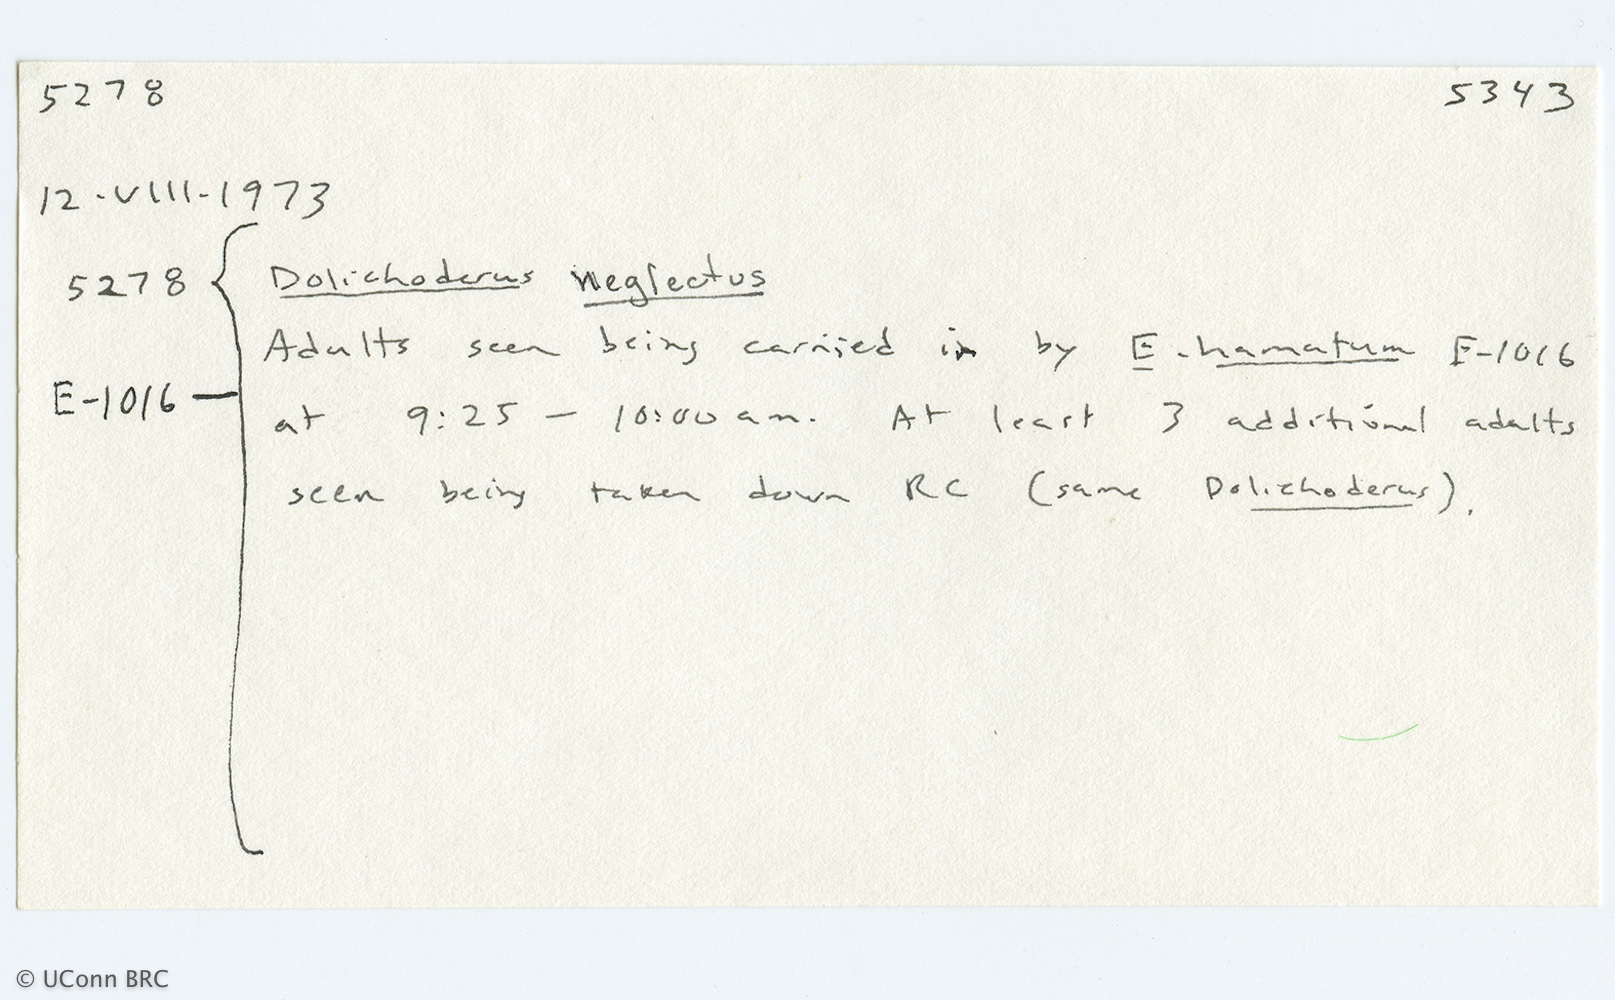 5278 5343
12-VIII-1973
5278 Dolichoderus neglectus
Adults seen being carried in by E. hamatum E-1016
E-1016 — at 9:25 – 10:00 am. At least 3 additional adults
seen being taken down RC (same Dolichoderus).
© UConn BRC